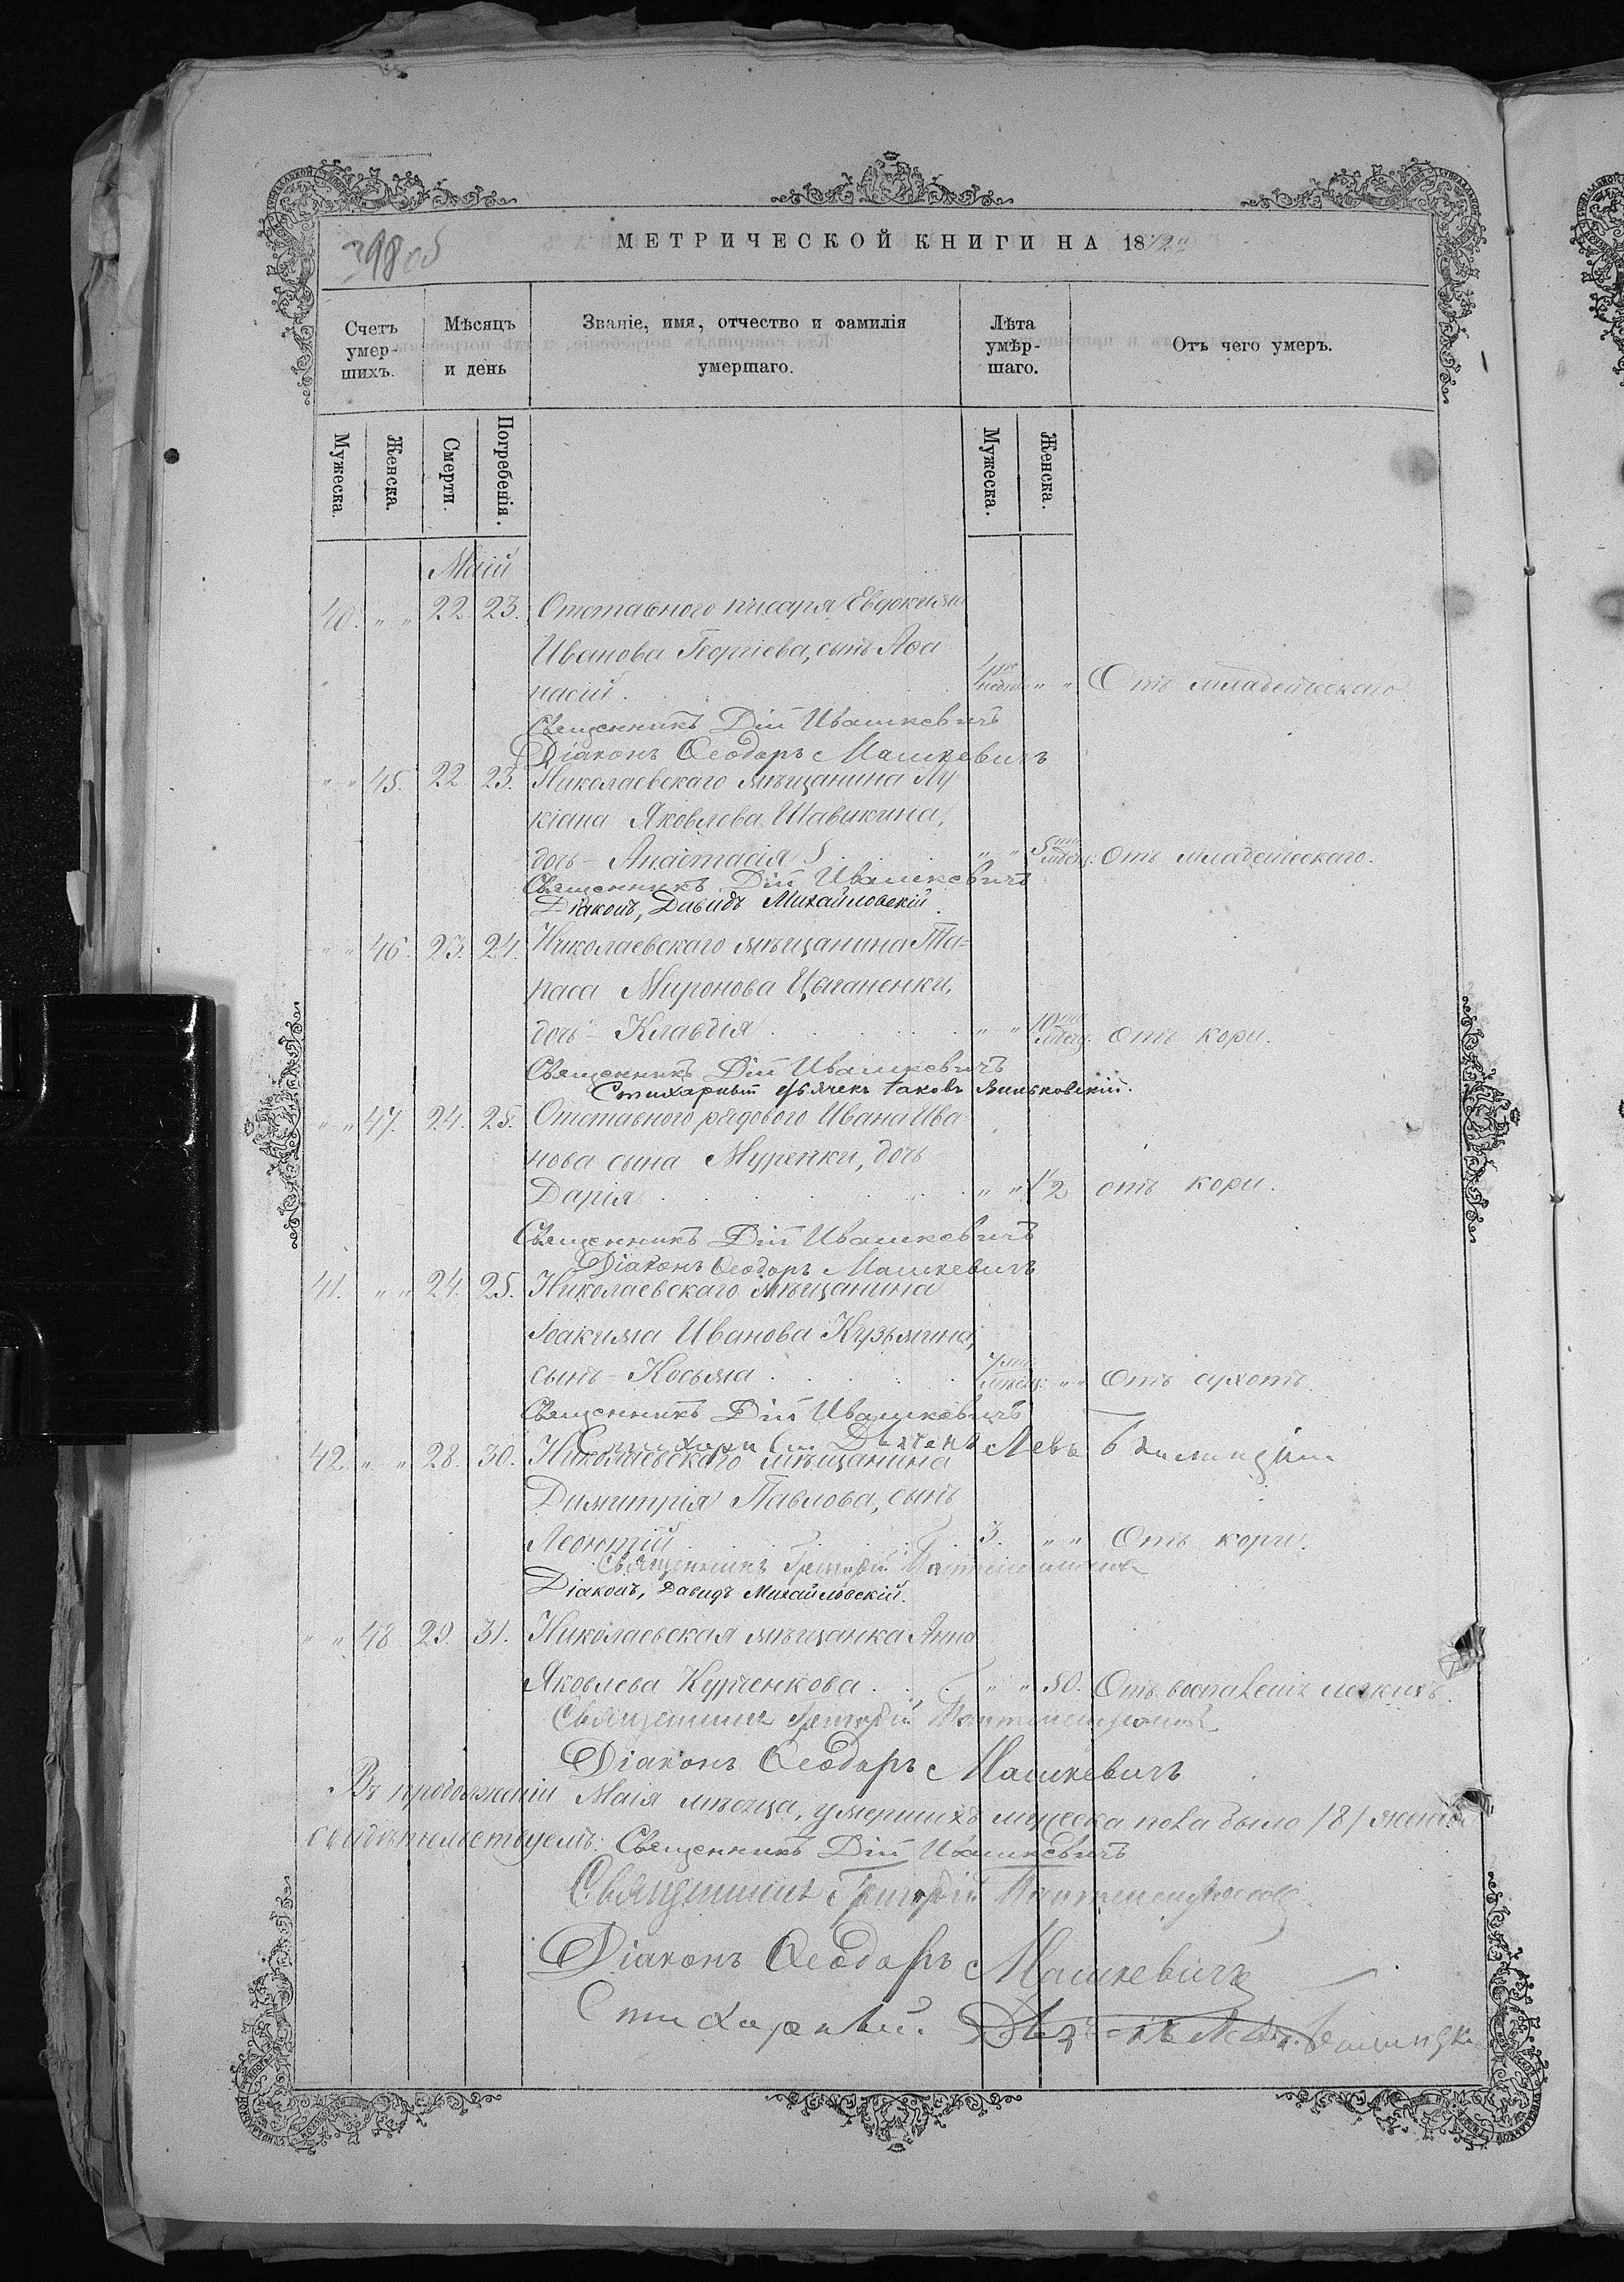 398 об
МЕТРИЧЕСКОЙ КНИГИ НА 1872й
Счетъ умер-шихъ.
Мѣсяцъ и день
Званіе, имя, отчество и фамилія умершаго.
Лѣта умѣр-шаго.
Отъ чего умеръ.
Мужеска. Женска. Смерти. Погребенія. Мужеска. Женска.
Маій
40. " " 22 23. Отставного писаря Евдокима
Иванова Георгіева, сынъ Афа
насій. " " Отъ младенческаго
Священникъ Дій Ивашкевичъ
Діаконъ Ѳеодоръ Машкевичъ
" " 45. 22 23. Николаевскаго мѣщанина Лу
кіана Яковлева Шавикина,
дочь - Анастасія " " 5 ти мѣсяц. Отъ младенческаго.
Священникъ Дій Ивашкевичъ
Діаконъ, Давидъ Михайловскій.
" " 46. 23. 24. Николаевскаго мѣщанина Та-
раса Миронова Цыганенки,
дочь - Клавдія " " 10 ти мѣсяц. отъ кори.
Священникъ Дій Ивашкевичъ
Стихарный дьячекъ Іаковъ Зиньковскій.
" " 47. 24. 25. Отставного рядового Ивана Ива
нова сына Муренки, дочь
Дарія " " 1/2 отъ кори.
Священникъ Дій Ивашкевичъ
Діаконъ Ѳеодоръ Машкевичъ
41. " " 24. 25. Николаевскаго мѣщанина
Іоакима Иванова Кузьмина,
сынъ - Косьма 7 ми мѣсяц. " " Отъ сухотъ.
Священникъ Дій Ивашкевичъ
Стихарный Дьячекъ Левъ
42. " " 28. 30. Николаевскаго мѣщанина
Димитрія Павлова, сынъ
Леонтій 3. " " Отъ кори.
Священникъ Григорій
Діаконъ, Давидъ Михайловскій.
" " 48 29. 31. Николаевская мѣщанка Анна
Яковлева Курченкова " " 50. Отъ воспаленія легкихъ.
Священникъ Григорій
Діаконъ Ѳеодоръ Машкевичъ
Въ продолженіи Маія мѣсяца, умершихъ мужеска пола было /8/ женска
свидѣтельствуемъ: Священникъ Дій Ивашкевичъ
Священникъ Григорій
Діаконъ Ѳеодоръ Машкевичъ
Стихарный Дьячекъ Левъ